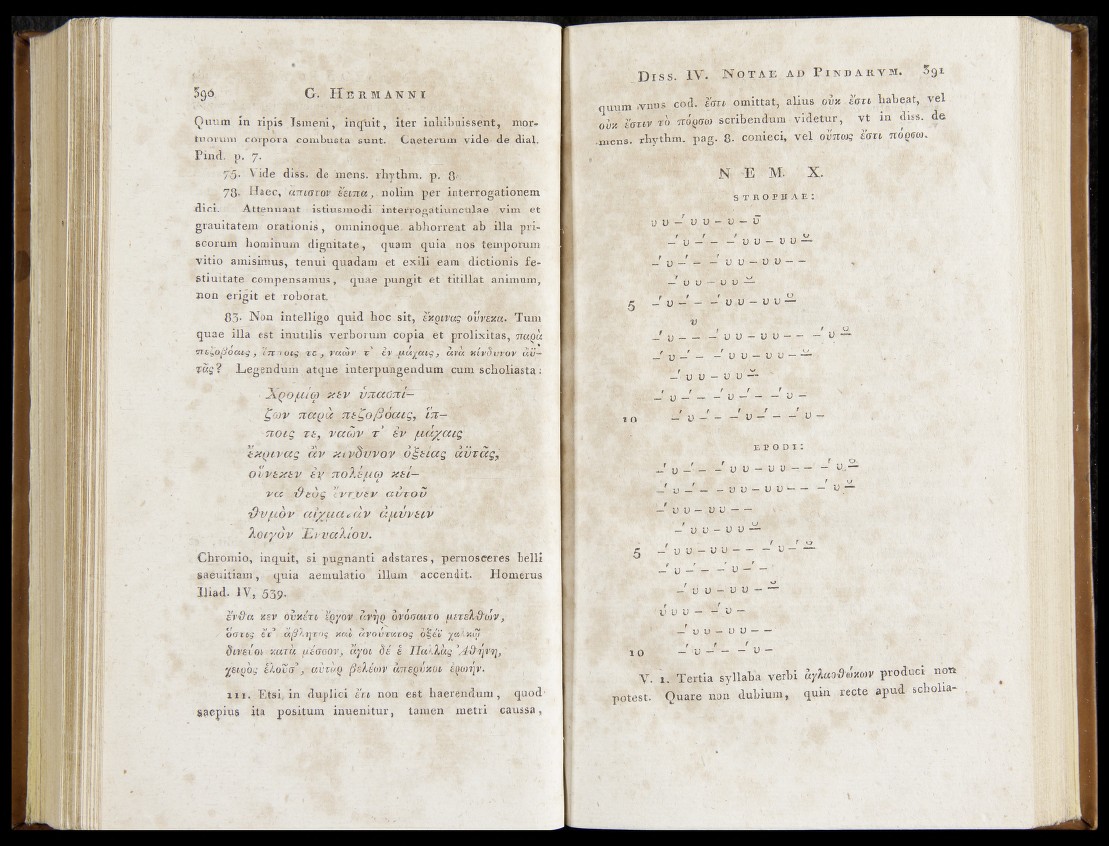 390 G. HERMANNI
Quum in ripis Ismeni, inquit, iter inhibuissent, mor-
tuorum corpora combusta sunt. Caeterum vide de dial.
Pind. p. 7.
75. Vide diss. de mens. rhythm. p. 8.
78. Haec, ἄπιστον ἔειπα, nolim per interrogationem
dici. Attenuant istiusmodi interrogatiunculae vim et
grauitatem orationis, omninoque abhorrent ab illa pri-
scorum hominum dignitate, quam quia nos temporum
vitio amisimus, tenui quadam et exili eam dictionis fe-
stiuitate compensamus, quae pungit et titillat animum,
non erigit et roborat.
83. Non intelligo quid hoc sit, ἔκρινας οὕνεκα. Tum
quae illa est inutilis verborum copia et prolixitas, παρὰ
πεζοβόαις, ἵπποις τε, ναῶν τ' ἐν μάχαις, ἀνὰ κίνδυνον ἀϋ-
τᾶς? Legendum atque interpungendum cum scholiasta:
Χρομίῳ κεν ὑπασπί-
ζων παρὰ πεζοβόαις, ἵπ-
ποις τε, ναῶν τ' ἐν μάχαις
ἔκρινας ἂν κινδυνον ὀξείας ἀϋτᾶς,
οὕνεκεν ἐν πολέμῳ κεί-
να θεὸς ἔντυεν αὐτοῦ
θυμὸν αἰχματὰν ἀμύνειν
λοιγὸν Ἐνυαλίου.
Chromio, inquit, si pugnanti adstares, pernosceres belli
saeuitiam, quia aemulatio illum accendit. Homerus
Iliad. IV, 539.
ἔνθα κεν οὐκέτι ἔργον ἀνὴρ ὀνόσαιτο μετελθών,
ὅστις ἔτ' ἄβλητος καὶ ἀνούτατος ὀξέϊ χαλκῷ
δινεύοι κατὰ μέσσον, ἄγοι δέ ἑ Παλλὰς Ἀθήνη,
χειρὸς ἑλοῦσ', αὐτὰρ βελέων ἀπερύκοι ἐρωήν.
111. Etsi in duplici ἔτι non est haerendum, quod
saepius ita positum inuenitur, tamen metri caussa,
DISS. IV. NOTAE AD PINDARVM. 391
quum vnus cod. ἔστι omittat, alius οὐκ ἔστι habeat, vel
οὐκ ἔστιν τὸ πόρσω scribendum videtur, vt in diss. de
mens. rhythm. pag. 8. conieci, vel οὔπως ἔστι πόρσω.
NEM. X.
STROPHAE:
5
10
EPODI:
5
10
V. 1. Tertia syllaba verbi ἀγλαοθώκων produci non
potest. Quare non dubium, quin recte apud scholia-